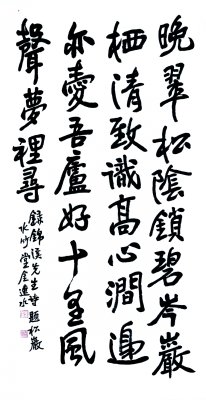 晚翠松陰鎖碧岑巖
栖清致識高心澗邊
亦愛吾廬好十里風
聲夢裡尋
錄錦溪先生詩題松巖
水竹堂金連水